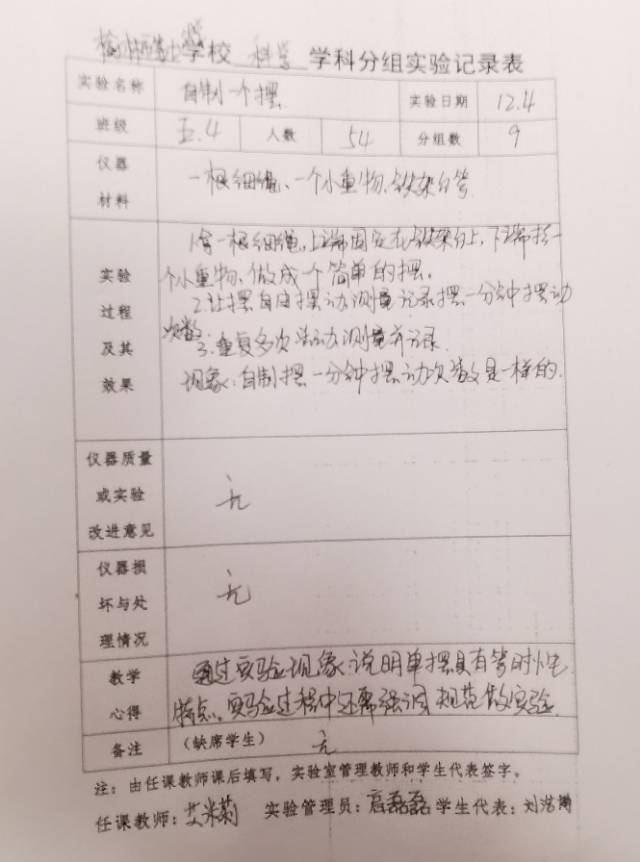 学校 科学 学科分组实验记录表
实验名称 自制一个摆 实验日期 12.4
班级 五.4 人数 54 分组数 9
仪器 材料 一根细绳、一个小重物、铁架台等
实验 过程 及其 效果
1.拿一根细绳,上端固定在铁架台上,下端挂一
个小重物,做成一个简单的摆。
2.让摆自由摆动测量记录摆一分钟摆动
次数.
3.重复多次活动测量并记录.
现象:自制摆一分钟摆动次数是一样的.
仪器质量 或实验 改进意见 无
仪器损 坏与处 理情况 无
教学 心得
通过实验现象说明单摆具有等时性
特点。实验过程中还需强调规范做实验.
备注 (缺席学生) 无
注:由任课教师课后填写,实验室管理教师和学生代表签字。
任课教师:艾米莉 实验管理员:磊磊 学生代表:刘浩